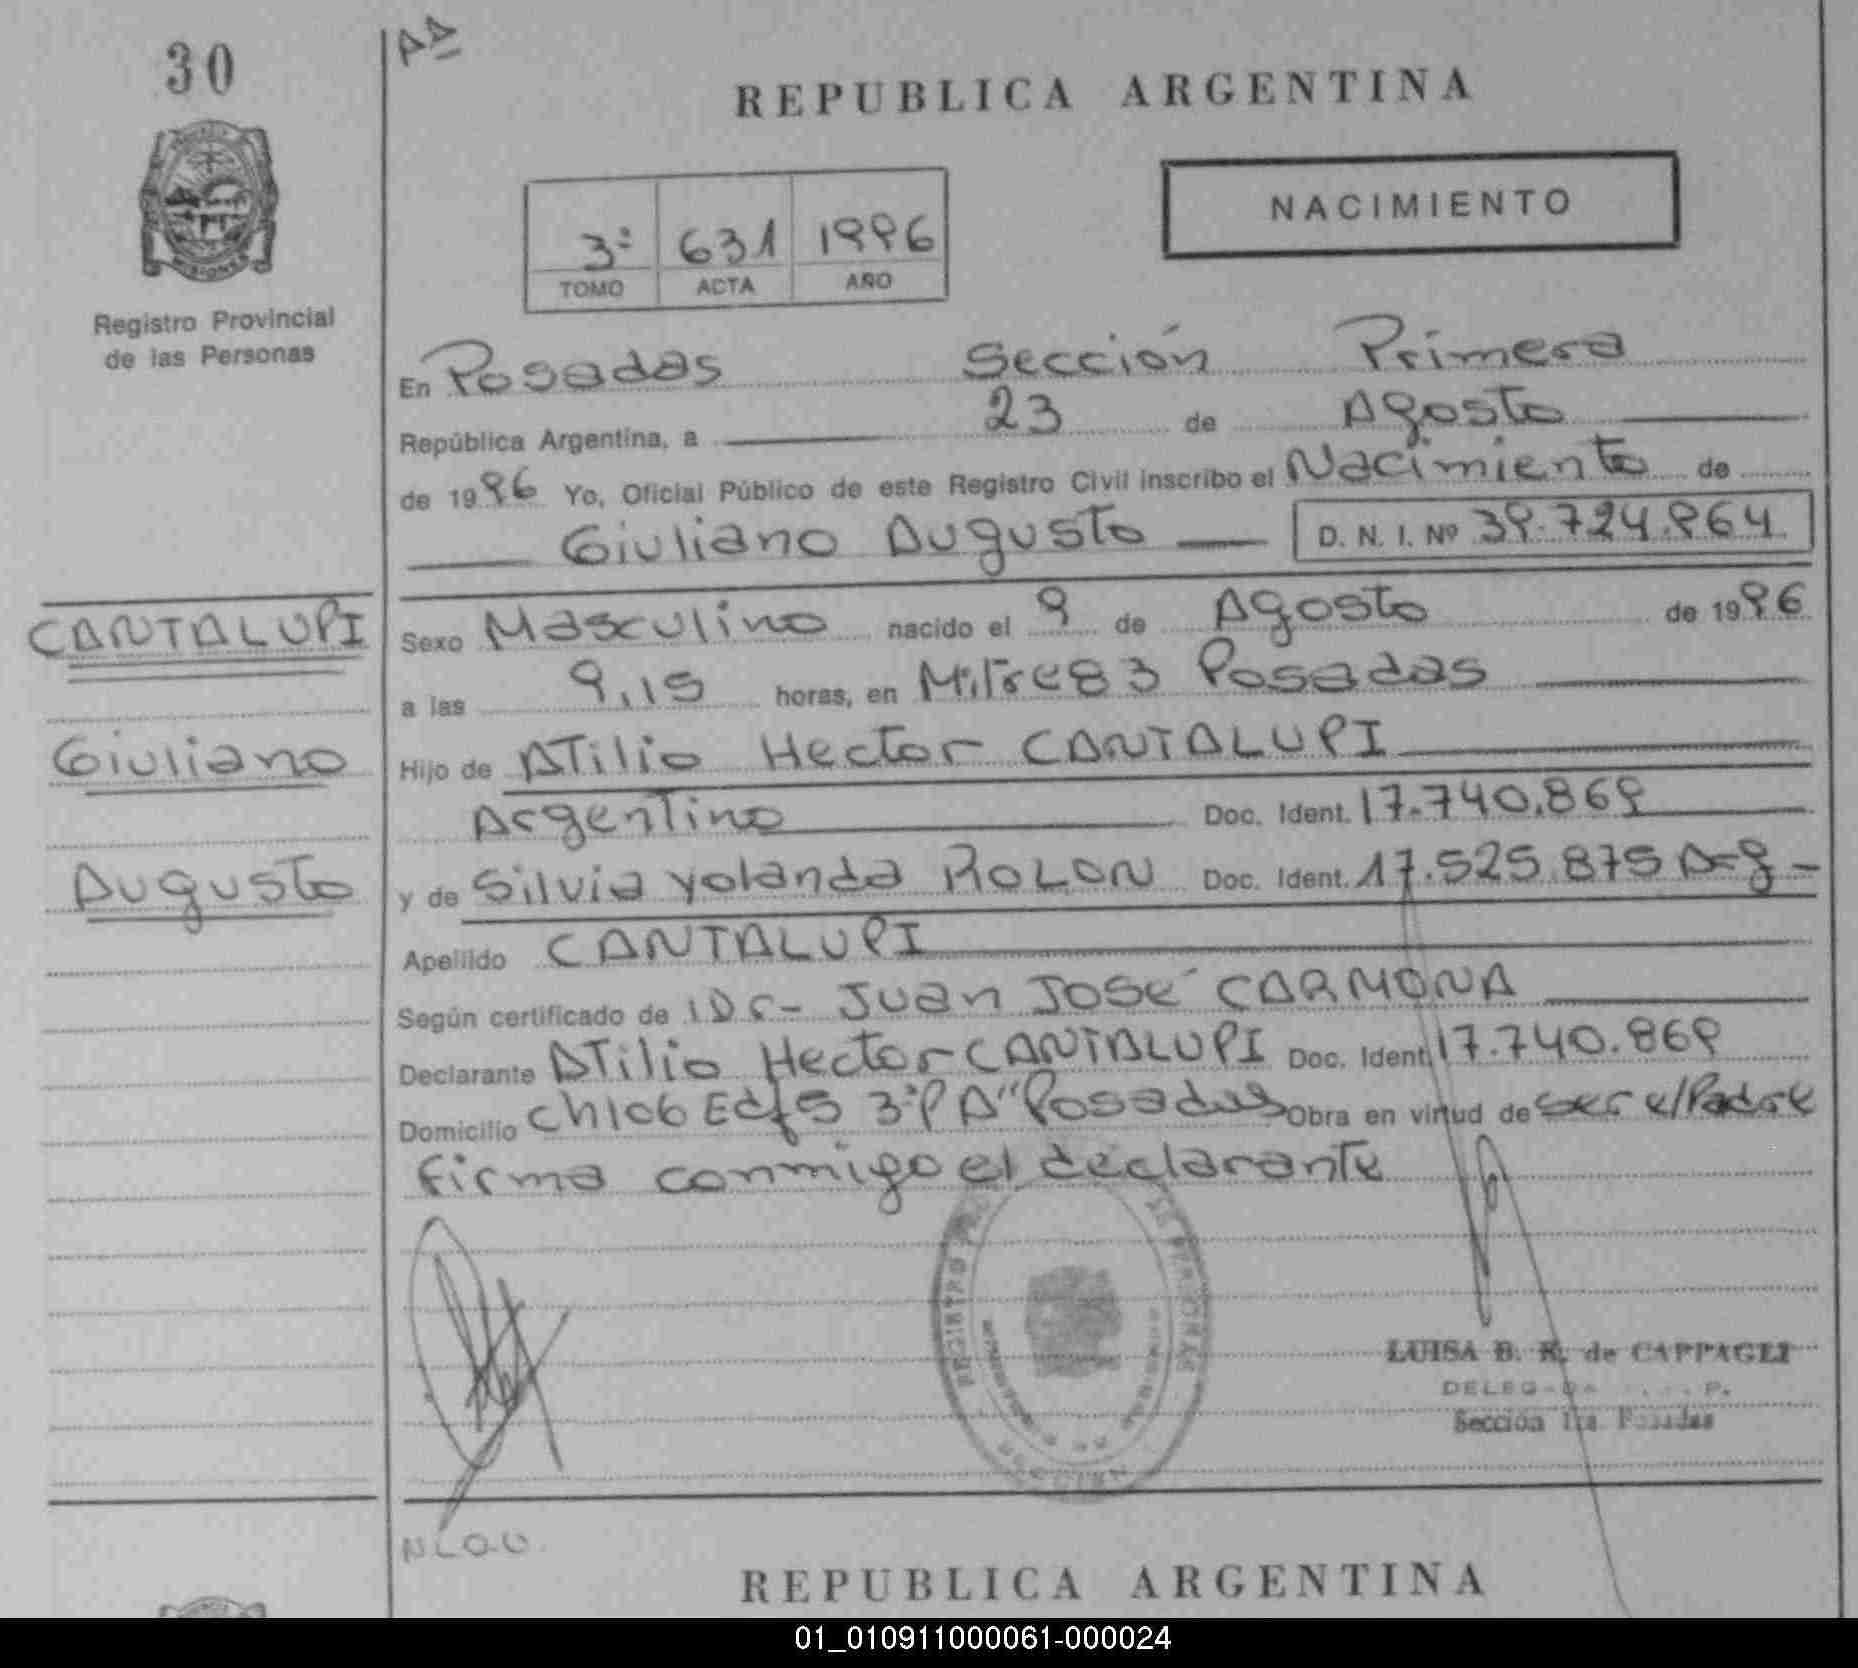 30
AA
REPUBLICA ARGENTINA
NACIMIENTO
3º 631 1996
TOMO ACTA AÑO
MISIONES
Registro Provincial
de las Personas
En Posadas Sección Primera
República Argentina, a 23 de Agosto
de 1996 Yo, Oficial Público de este Registro Civil inscribo el Nacimiento de
Giuliano Augusto D. N. I. Nº 39.724.964
CANTALUPI
Giuliano
Augusto
Sexo Masculino nacido el 9 de Agosto de 1996
a las 9,15 horas, en Mitre 83 Posadas
Hijo de Atilio Hector CANTALUPI
Argentino Doc. Ident. 17.740.869
y de Silvia Yolanda ROLON Doc. Ident. 17.525.875 Arg
Apellido CANTALUPI
Según certificado de Dr- Juan José CARMONA
Declarante Atilio Hector CANTALUPI Doc. Ident. 17.740.869
Domicilio Ch106 Edf5 3ºP A" Posadas Obra en virtud de ser el Padre
firma conmigo el declarante
LUISA B. K. de CAPPAGLI
Sección 1ra. Posadas
REPUBLICA ARGENTINA
01_010911000061-000024